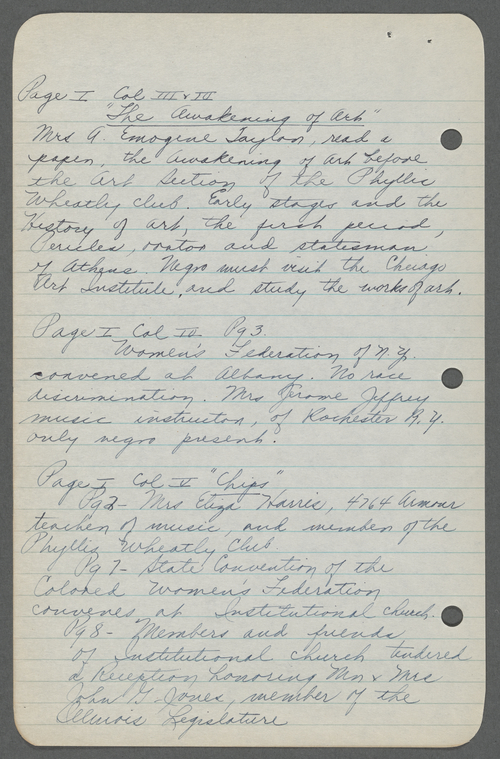 Page I Col III & IV
"The Awakening of Art"
Mrs A. Emogene Taylor, read a
paper, the Awakening of Art before
the Art Section of the Phyllis
Wheatly Club. Early stages and the
History of art, the first period,
Pericles, orator and statesman
of Athens. Negro must visit the Chicago
Art Institute, and study the works of art.
Page I Col IV Pg 3.
Women's Federation of N.Y.
convened at Albany. No race
discrimination. Mrs Jerome Jeffrey
music instructor, of Rochester N.Y.
only negro present.
Page I Col V "Chips"
Pg 2- Mrs Eliza Harris, 4764 Armour
teacher of music, and member of the
Phyllis Wheatly Club
Pg 7- State Convention of the
Colored Women's Federation
convenes at Institutional church.
Pg 8- Members and friends
of Institutional church tendered
a Reception honoring Mr & Mrs
John G. Jones, member of the
Illinois Legislature